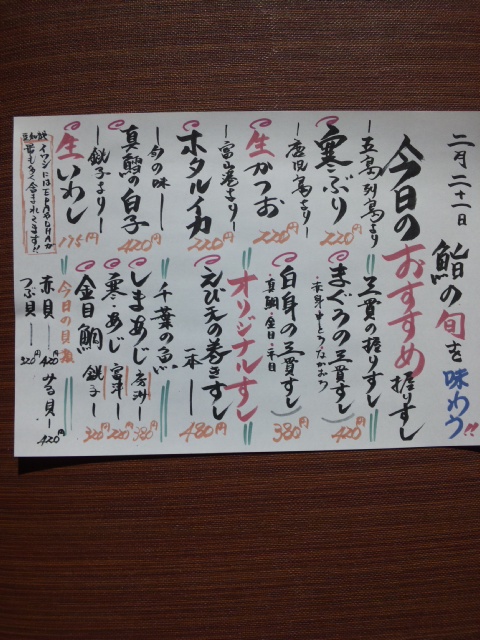 二月二十一日
鮨の旬を味わう!!
今日のおすすめ握りずし
=五島列島より
寒ぶり
220円
=鹿児島より=
生かつお
220円
=富山港より=
ホタルイカ
=今の味=
真鱈の白子
420円
=銚子より=
生いわし
175円
豆知識
イワシにはEPAやDHAが
最も多く含まれてます!!
=三貫の握りずし=
まぐろの三貫ずし
赤身・中とろ・ながおち
420円
白身の三貫ずし
真鯛・金目・平目
380円
オリジナルずし
えび天の巻きずし
一本 480円
=千葉の魚=
しまあじ
380円
寒・あじ
富津
220円
金目鯛
銚子
320円
=今日の貝類=
赤貝 420円
みる貝 420円
つぶ貝 320円